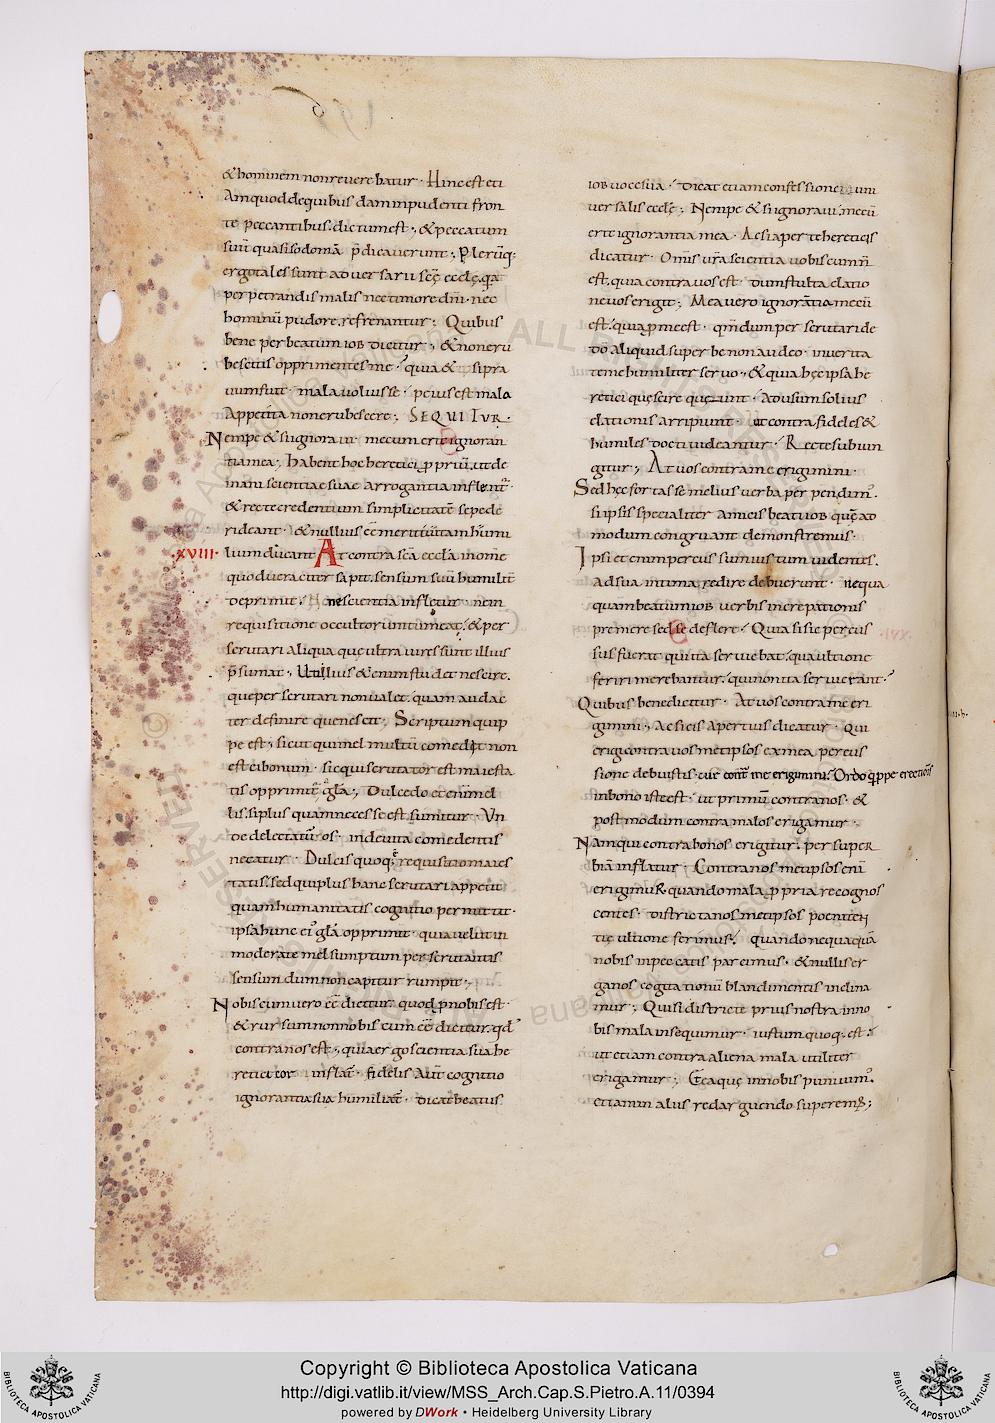 & hominem non reverebatur · Hinc est eti
Am quod de quibusdam inpudenti fron
te peccantibus dictum est ·, & peccatum
suū quasi sodomā p̄dicaverunt ·, Plerūq;
ergo tales sunt adversarii scē ecclę. qā
perpetrandis malis nec timore dn̄i · nec
hominū pudore. refrenantur ; Quibus
bene per beatum iob dicitur ·, & non eru
bescitis opprimentes me · quia & si pra
vum fuit · mala voluisse · peius est mala
Appetita non erubescere ; SEQUITUR ·
Nempe & si ignoravi · mecum erit ignoran
tia mea ; Habent hoc heretici ꝓpriū. ut de
inani scientiae suae arrogantia inflent̄ ·
& recte credentium simplicitatē sepe de
rideant · & nullius eē meriti vitam humi
XVIII·
lium dicant At contra scā ecclā in om̄e
quod veraciter sapit. sensum suū humilit̄
deprimit · Ne scientia infletur · ne in
requisitione occultorum tumeat. & per
scrutari aliqua quę ultra vires sunt illius
p̄sumat ·, Utilius & enim studet nescire.
quę perscrutari non valet. quam audac
ter definire que nescit ·, Scriptum quip
pe est ·, sicut qui mel multū comedit non
est ei bonum · sic qui scrutator est maiesta
tis opprimit̄ glā ·, Dulcedo etenim mel
lis. si plus quam necesse est sumitur · Un
de delectatur os · inde vita comedentis
necatur · Dulcis quoq; requisitio maies
tatis. sed qui plus hanc scrutari appetit
quam humanitatis cognitio permittit ·
ipsa hunc ei glā opprimit · quia velut in
moderate mel sumptum perscrutantis
sensum dum non capitur rumpit ·,
Nobiscum vero eē dicitur. quod ꝓ nobis est ·
& rursum non nobiscum eē dicitur. qd
contra nos est ·, quia ergo scientia sua he
reticos inflat̄ · fidelis Aut̄ cognitio
ignorantia sua humiliat̄ · dicat beatus
iob voce sua · dicat etiam confessione
versalis ecclę ; Nempe & si ignoravi. mecū
erit ignorantia mea · Ac si aperte hereticis
dicatur · Omīs vr̄a scientia vobiscum n̄
est. quia contra vos est · dum stulta elatio
ne vos erigit ; Mea vero ignorātia mecū
est. quia ꝓ me est · qm̄ dum perscrutari de
dō aliquid superbe non audeo · in verita
te me humiliter servo ·, & quia hęc ipsa he
retici quę scire quęrunt · Ad usum solius
elationis arripiunt · ut contra fideles &
humiles docti videantur · Recte subiun
gitur ·, At vos contra me erigimini ·
Sed hęc fortasse melius verba perpendim᾽ ·
si ipsis specialiter Amicis beati iob quę ad
modum congruant demonstremus ·
Ipsi etenim percussum iustum videntes.
Ad sua intima redire debuerunt · nequa
quam beatum iob verbis increpationis
premere sed se deflere · Quia si sic percus
sus fuerat qui ita serviebat. qua ultione
feriri merebantur. qui non ita servierant ·
Quibus bene dicitur · At vos contra me eri
gimini ·, Ac si eis Apertius dicatur · Qui
erigi contra vosmetipsos ex mea percus
sione debuistis · cur contra me erigimini · Ordo q̄ppe erectionis
in bono iste est · ut primū contra nos · &
postmodum contra malos erigamur ·
Nam qui contra bonos erigitur. per super
biā inflatur · Contra nosmetipsos enī
erigimur. quando mala ꝓpria recognos
centes · districta nosmetipsos poeniten
tię ultione ferimus · quando nequaquā
nobis in peccatis parcimus · & nullis er
ga nos cogitationū blandimentis inclina
mur ·, Qui si districte prius nostra in no
bis mala insequimur · iustum quoq: est ·
ut etiam contra aliena mala utiliter
erigamur ·, Ea quę in nobis punium᾽ ·
etiam in aliis redarguendo superem᾽ ;
Copyright © Biblioteca Apostolica Vaticana
http://digi.vatlib.it/view/MSS_Arch.Cap.S.Pietro.A.11/0394
powered by DWork • Heidelberg University Library
BIBLIOTECA APOSTOLICA VATICANA
BIBLIOTECA APOSTOLICA VATICANA